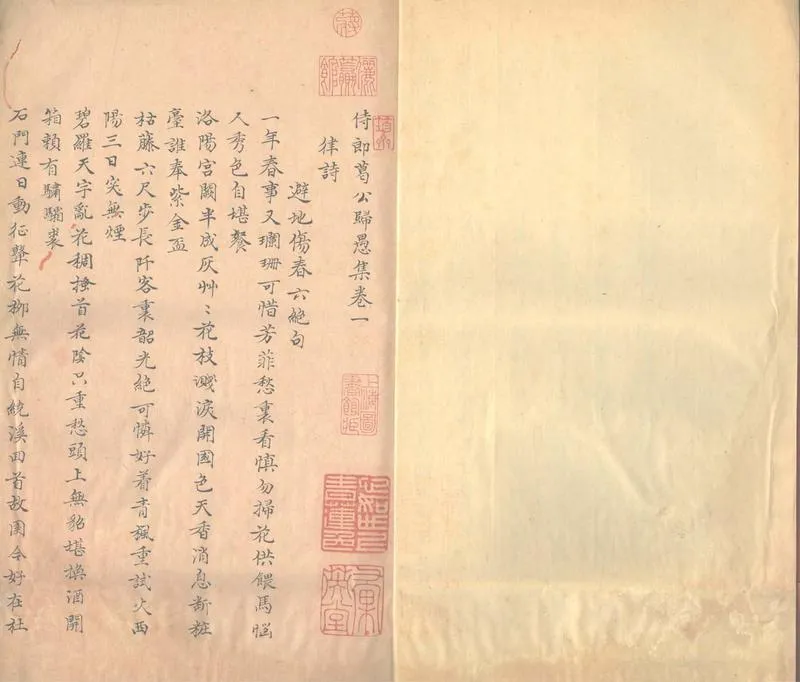 侍郎葛公歸愚集卷一
律詩
避地傷春六絕句
一年春事又斕珊可惜芳菲愁裏看慎勿掃花供餵馬惱
人秀色自堪餐
洛陽宮闕半成灰艸〻花枝濺淚開國色天香消息斷粧
臺誰奉紫金盃
枯藤六尺步長阡客裏韶光絕可憐好着青楓重試火西
陽三日突無煙
碧羅天宇亂花稠搔首花陰只重愁頭上無貂堪換酒開
箱賴有驌驦裘
石門連日動征鼙花柳無情自繞溪回首故園令好在杜
上海圖書館藏